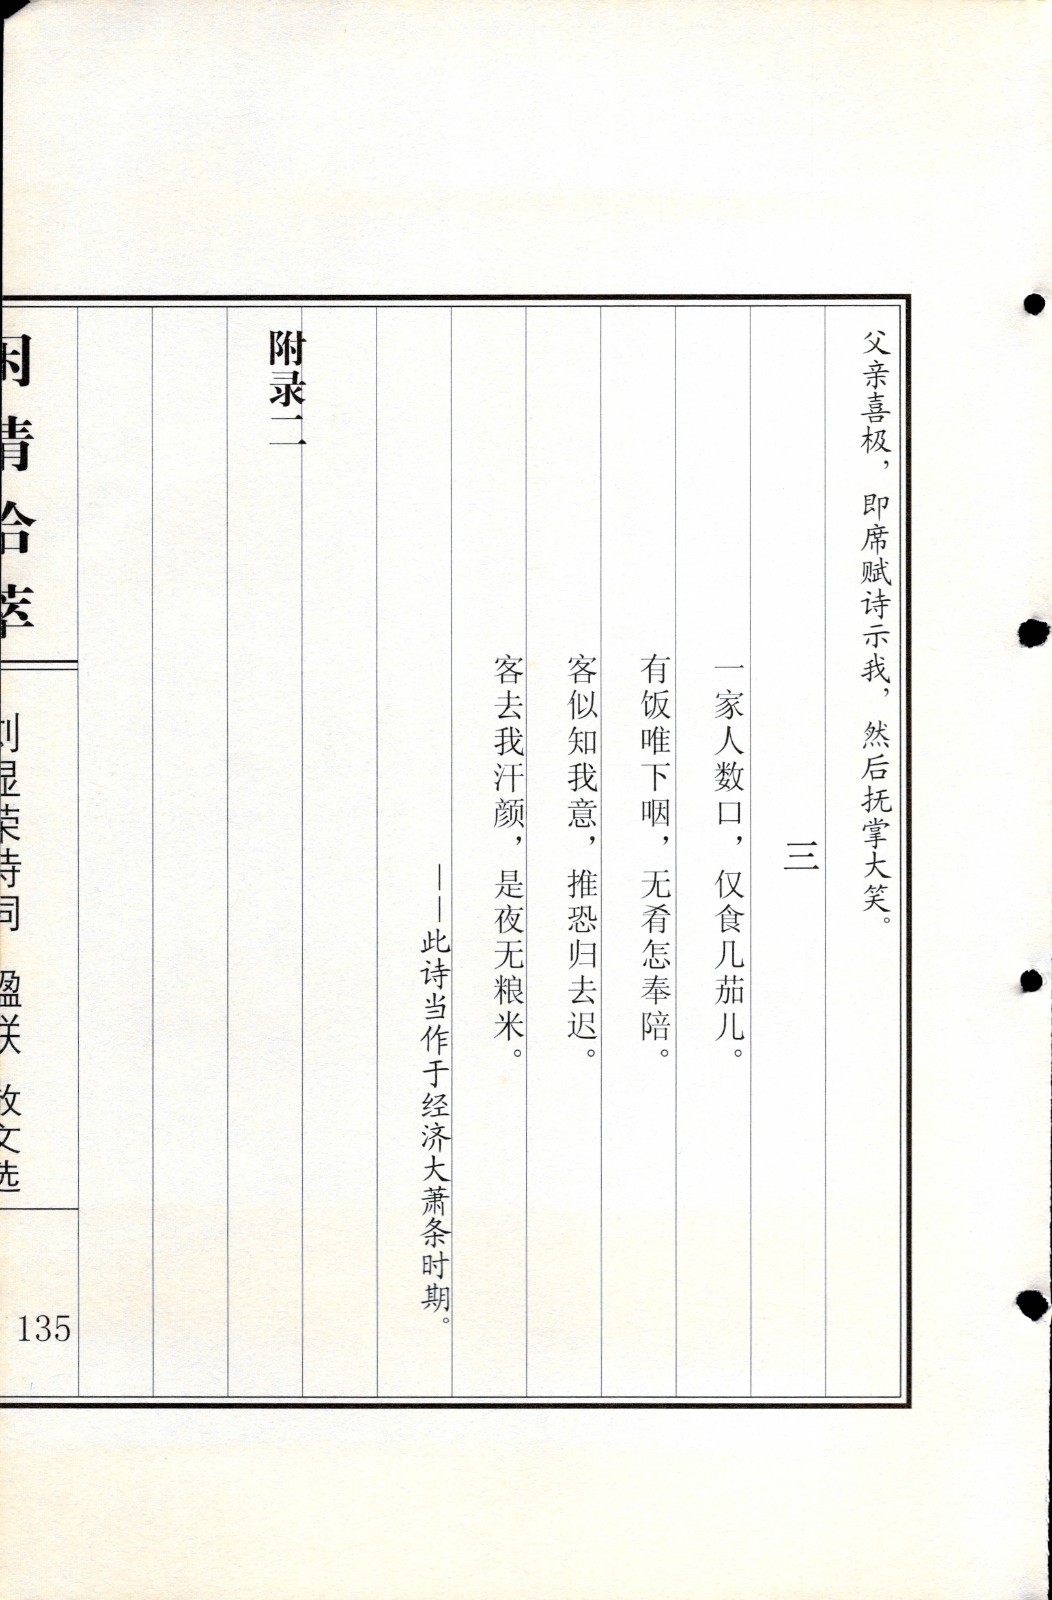 父亲喜极，即席赋诗示我，然后抚掌大笑。
三
一家人数口，仅食几茄儿。
有饭唯下咽，无肴怎奉陪。
客似知我意，推恐归去迟。
客去我汗颜，是夜无粮米。
——此诗当作于经济大萧条时期。
附录二
闲情拾萃
刘显荣诗词 楹联 散文选
135